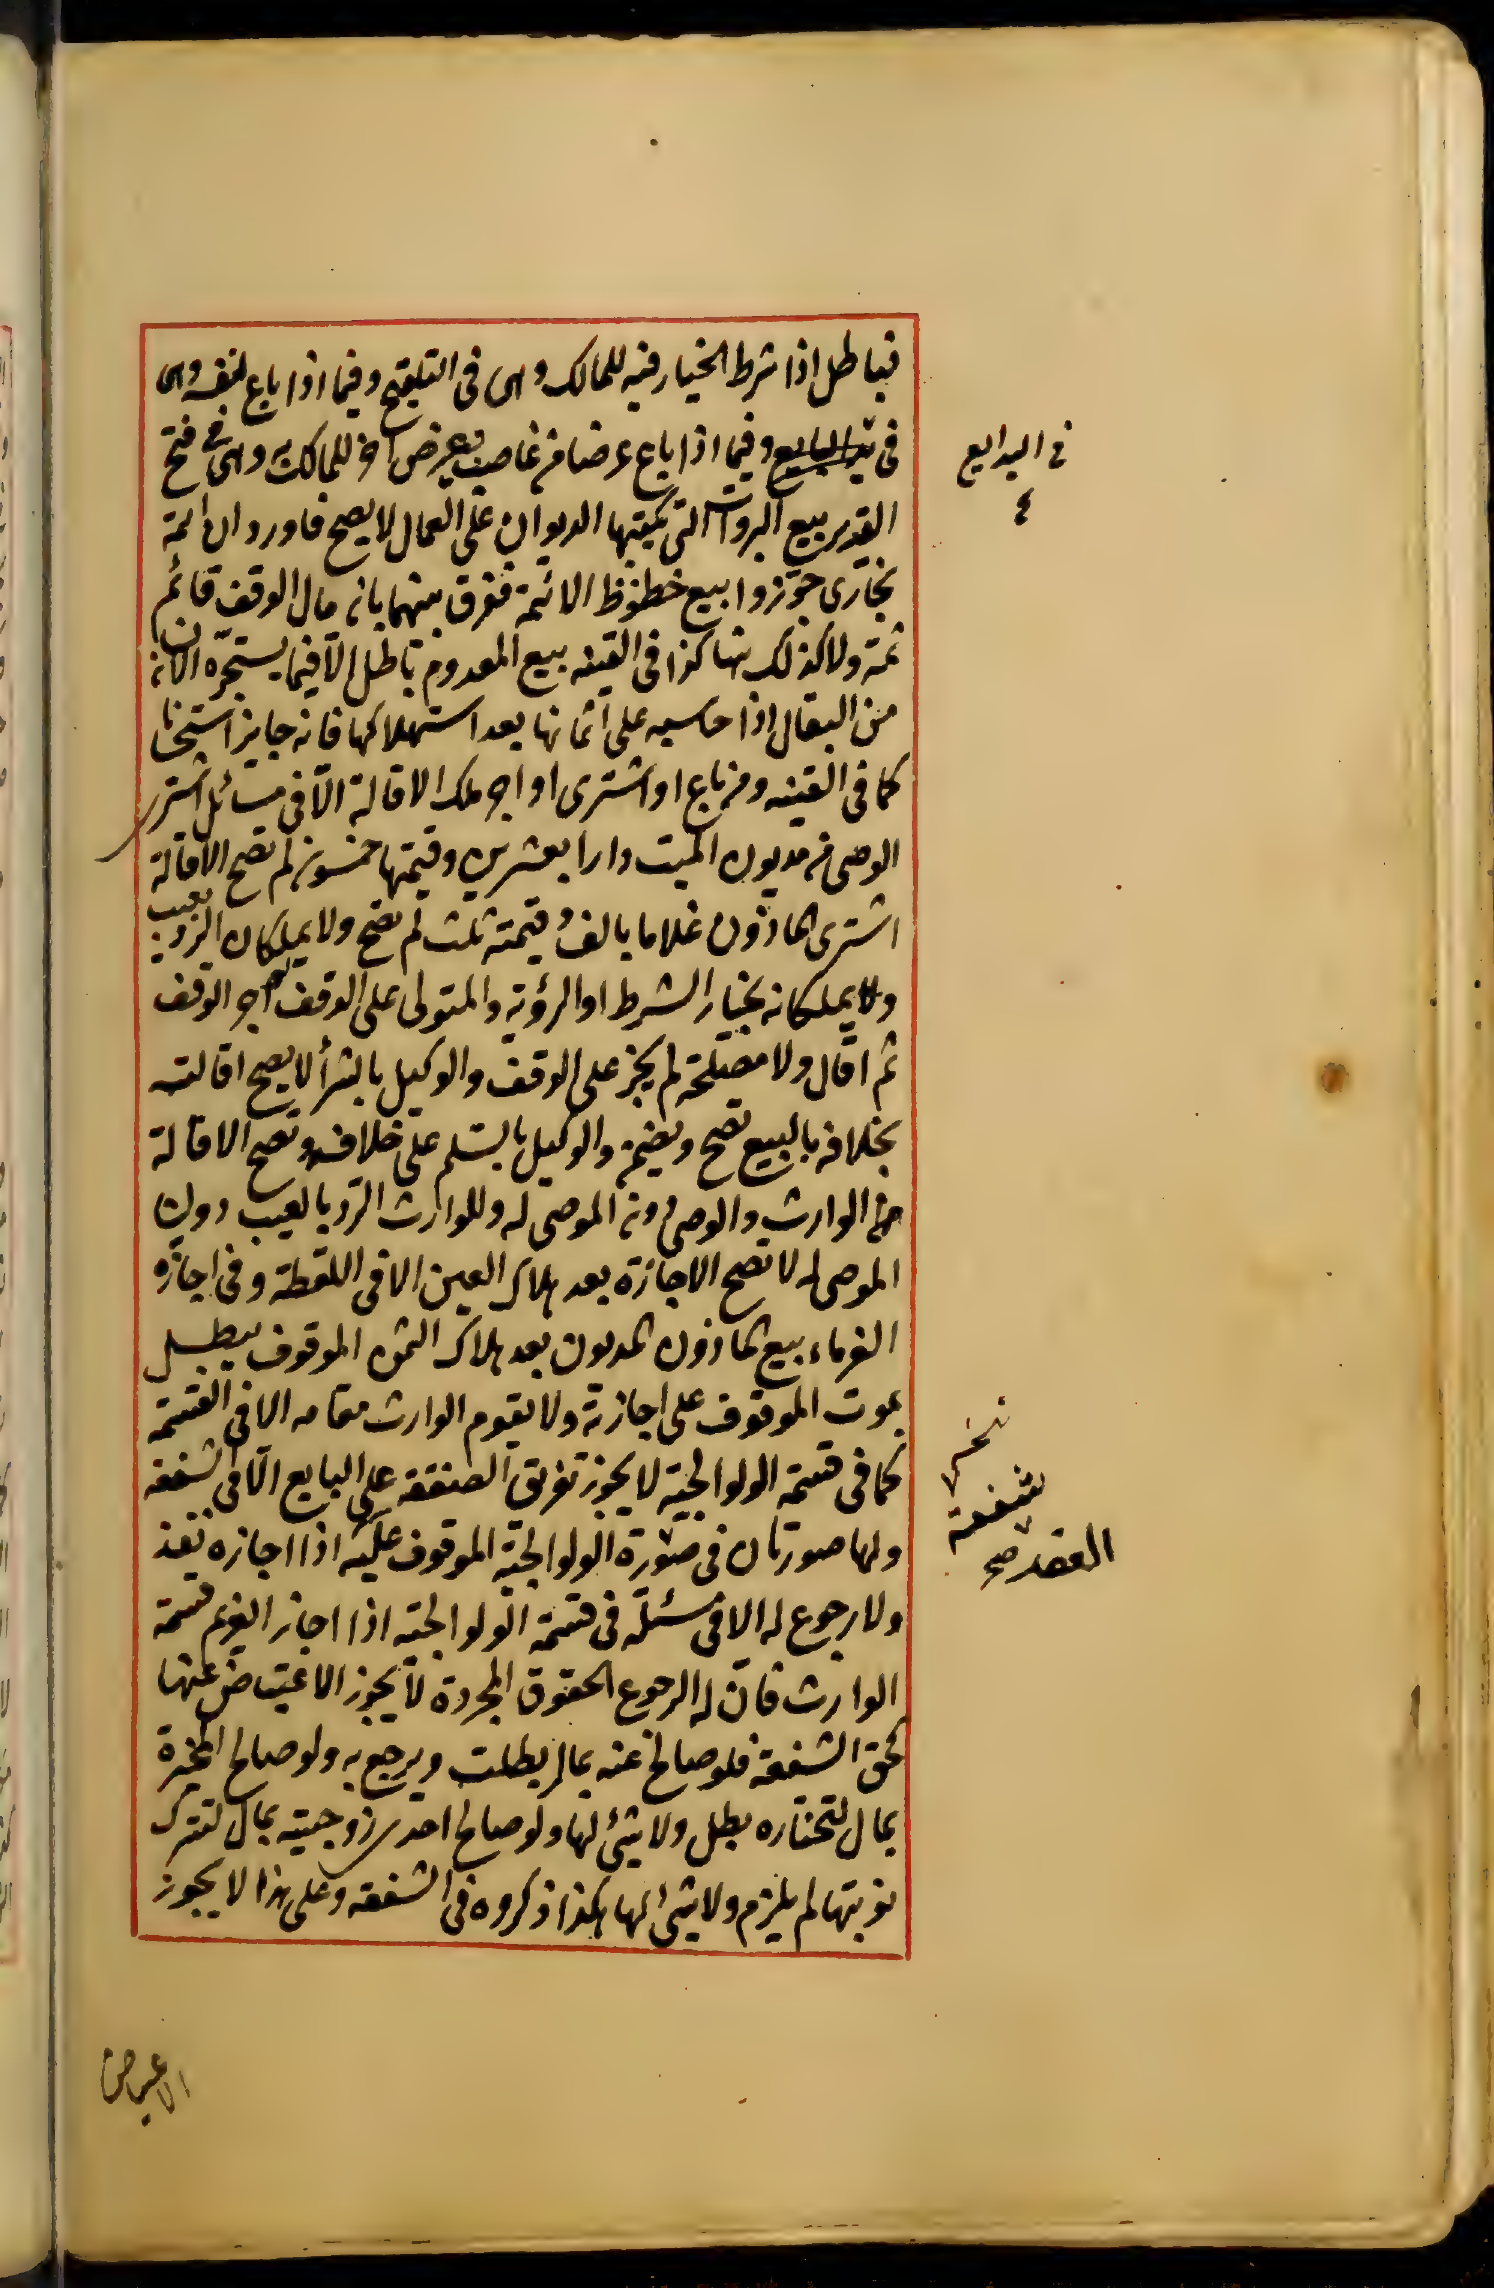 فباطل اذا شرط الخيار فيه للمالك وهى فى التلقيح وفيما اذا باع لنفسه وهى
فى البدايع وفيما اذا باع عرضا من غاصب بعرض آخر للمالك به وهى فى فتح
القدير بيع البروات التى يكتبها الديوان على العمال لا يصح فاورد ان ائمة
بخارى جوزوا بيع خطوظ الائمة ففرق بينهما بان مال الوقف قائم
ثمة ولا كذلك هنا كذا فى القنيه بيع المعدوم باطل الّا فيما يستجرّه الانسان
من البقال اذا حاسبه على اثمانها بعد استهلاكها فانه جايز استحسانا
كما فى القنيه ومن باع او اشترى او اجر ملك الاقالة الّا فى مسائل اشترى
الوصى من مديون الميت دارا بعشرين وقيمتها خمسون لم تصح الاقالة
اشترى الماذون غلاما بالف وقيمته ثلث لم تصح ولا يملكان الرد بعيب
ولا يملكانه بخيار الشرط او الرؤية والمتولى على الوقف لو اجر الوقف
ثم اقال ولا مصلحة لم يجز على الوقف والوكيل بالشرأ لا يصح اقالته
بخلافه بالبيع تصح ويضمن والوكيل بالسّلم على خلاف وتصح الاقالة
من الوارث والوصى دون الموصى له وللوارث الرّد بالعيب دون
الموصى له لا تصح الاجازة بعد هلاك العين الا فى اللقطة وفى اجازة
الغرماء بيع الماذون المديون بعد هلاك الثمن الموقوف يبطل
بموت الموقوف على اجازته ولا يقوم الوارث مقامه الا فى القسمة
كما فى قسمة الولوالجية لا يجوز تفريق الصفقة على البايع الّا فى الشفعة
ولها صورتان فى صورة الولوالجية الموقوف عليه اذا اجازه نفذ
ولا رجوع له الا فى مسئلة فى قسمة الولوالجية اذا اجاز الغريم قسمة
الوارث فان له الرجوع الحقوق المجردة لا يجوز الاعتياض عنها
كحق الشفعة فلو صالح عنه بمال بطلت ويرجع به ولو صالح المخيرة
بمال لتختاره بطل ولا شئ لها ولو صالح احدى زوجتيه بمال لتترك
نوبتها لم يلزم ولا شئ لها هكذا ذكروه فى الشفعه وعلى هذا لا يجوز
فى البدايع
شفعة
العقد صح
الاعياض